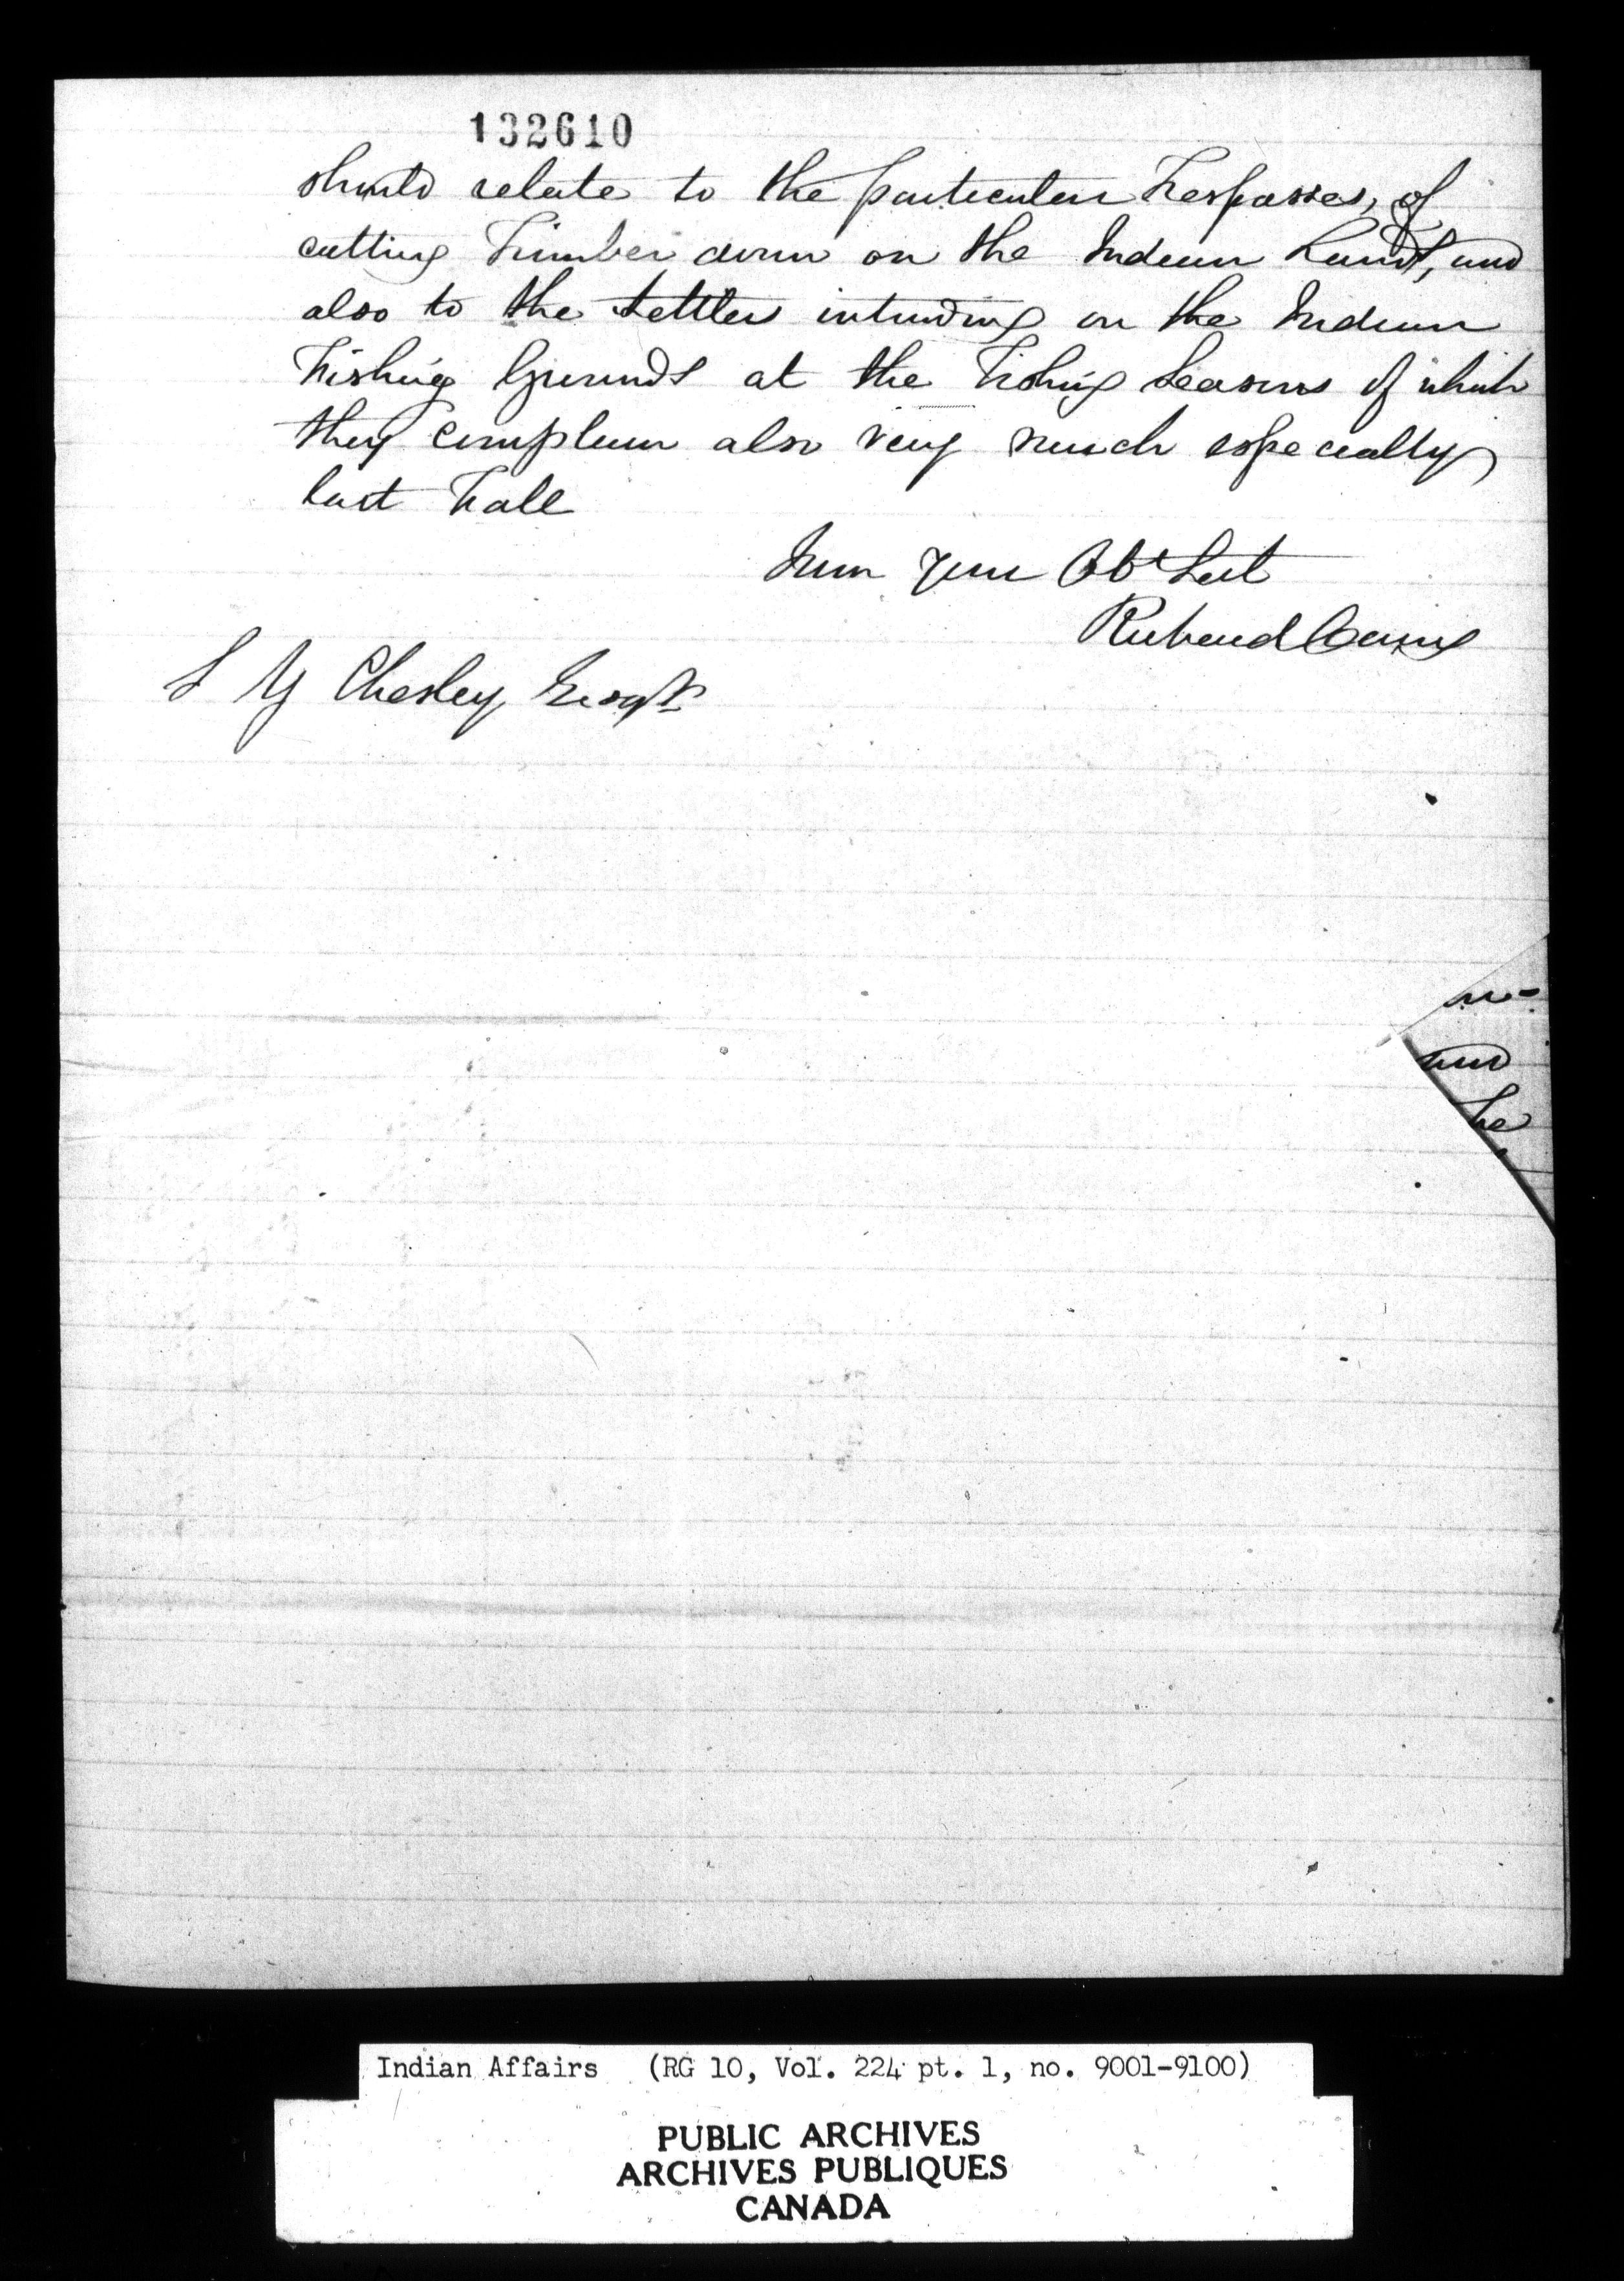 132610
should relate to the particular Trespasses, of
cutting Timber down on the Indian Lands, and
also to the Settlers intruding on the Indian
Fishing Grounds at the Fishing Seasons of which
they complain also very much especially
last Fall
I am your Obt Sert
Richard
S Y Chesley Esqr
and
he
Indian Affairs (RG 10, Vol. 224 pt. 1, no. 9001-9100)
PUBLIC ARCHIVES
ARCHIVES PUBLIQUES
CANADA